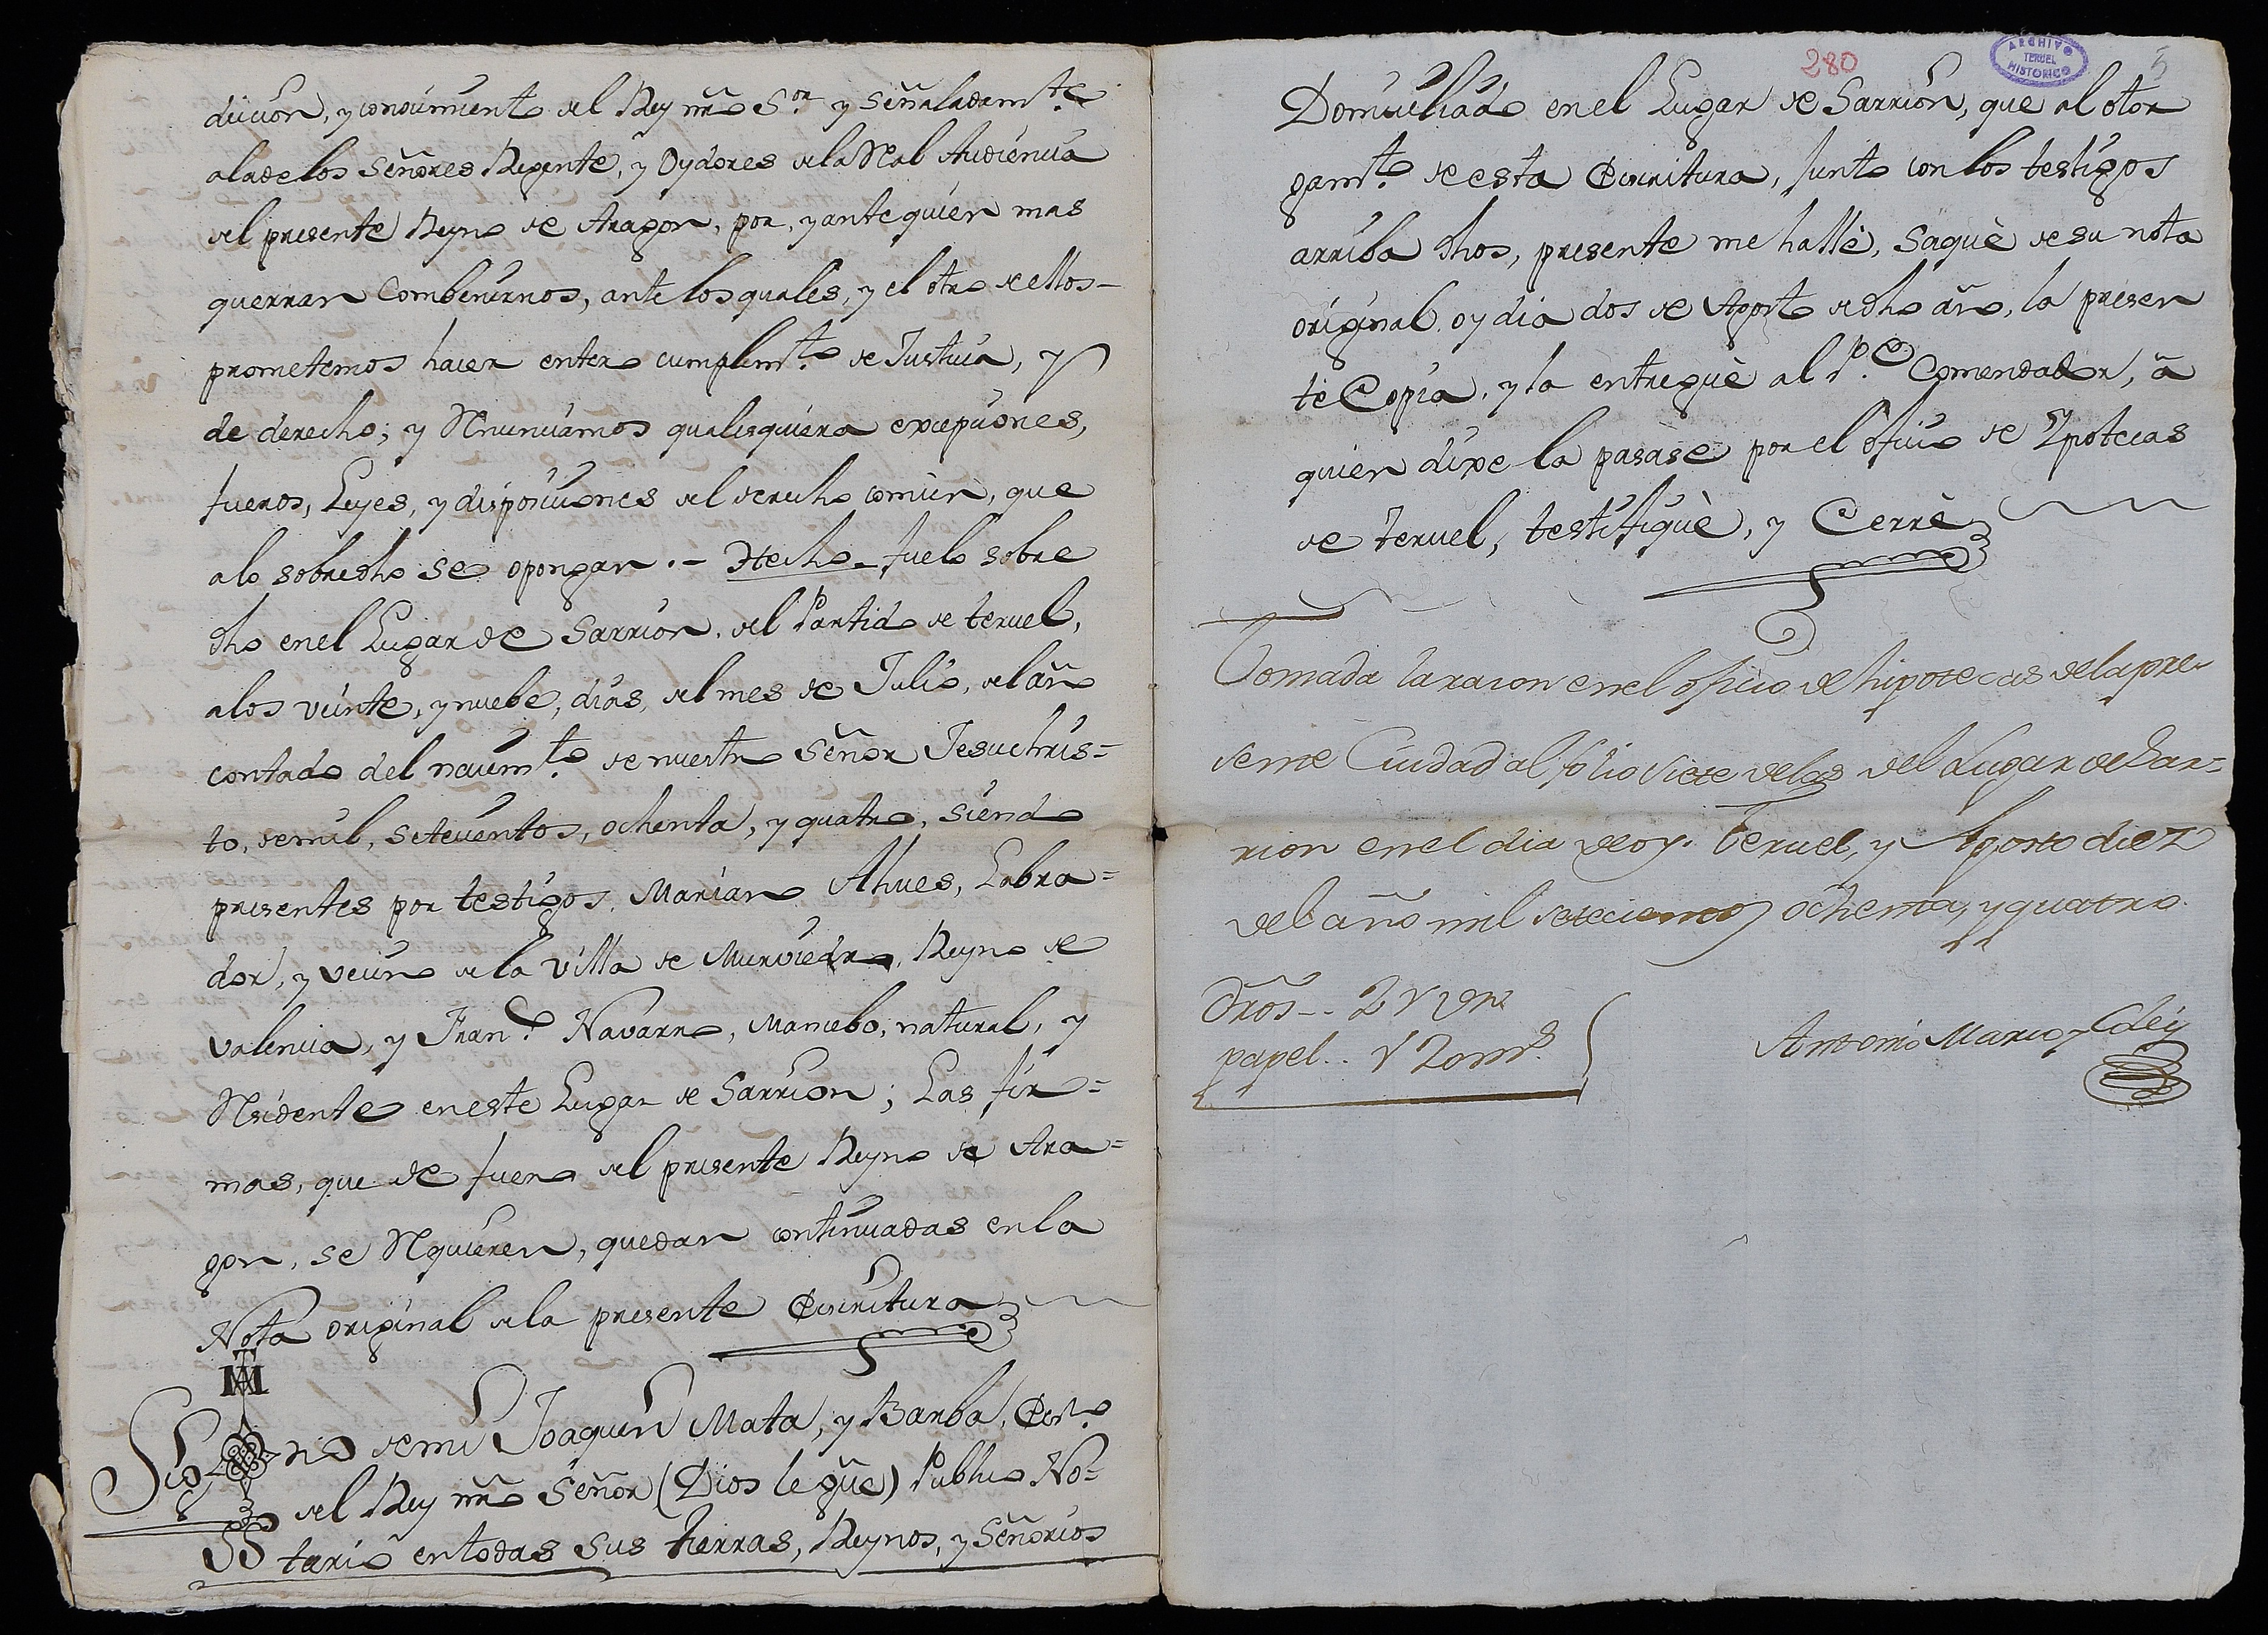 dicion, y conocimiento del Rey nr̃o S.or y Señaladam.te
a la de los Señores Regente, y Oydores de la Real Audiencia
del presente Reyno de Aragon, por, y ante quien mas
querran Combenirnos, ante los quales, y el otro de ellos-
prometemos hacer entero cumplim.to de Justicia, y
de derecho; y Renunciamos qualesquiera excepciones,
fueros, Leyes, y disposiciones del derecho comùn, que
a lo sobredho se opongan .- Hecho fue lo sobre
dho en el Lugar de Sarrion, del Partido de teruel,
a los veinte, y nuebe, dias, del mes de Julio, del año
contado del nacim.to de nuestro Señor Jesuchris=
to, de mil, setecientos, ochenta, y quatro, siendo
presentes por testigos, Mariano Ahues, Labra=
dor, y vecino de la Villa de Murviedro, Reyno de
Valencia, y Fran.co Navarro, Mancebo, natural, y
Residente en este Lugar de Sarrion; Las fir=
mas, que de fuero del presente Reyno de Ara=
gon, se Requieren, quedan continuadas en la
Nota original de la presente Escritura
Sig no de mi Joaquin Mata, y Barba, Esn.o
del Rey nr̃o Señor (Dios le gũe) Publico No=
tario en todas sus tierras, Reynos, y Señorios
280
5
ARCHIVO HISTORICO TERUEL
Domiciliado en el Lugar de Sarrion, que al otor
gam.to de esta Escritura, junto con los testigos
arriba dhos, presente me hallè, Saquè de su nota
original, oy dia dos de Agosto de dho año, la presen
te Copia, y la entreguè al P.e Comendador, à
quien dixe la pasase por el oficio de Ypotecas
de teruel, testifiquè, y Cerrè
Tomada la racon en el oficio de hipotecas de la pre-
sente Ciudad al folio siete de las del Lugar de Sar=
rion en el dia de oy. Teruel, y Agosto diez
del año mil setecientos ochenta, y quatro.
Dr̃os-- 2 r von
papel.. r 20 mr̃s
Antonio Mario y